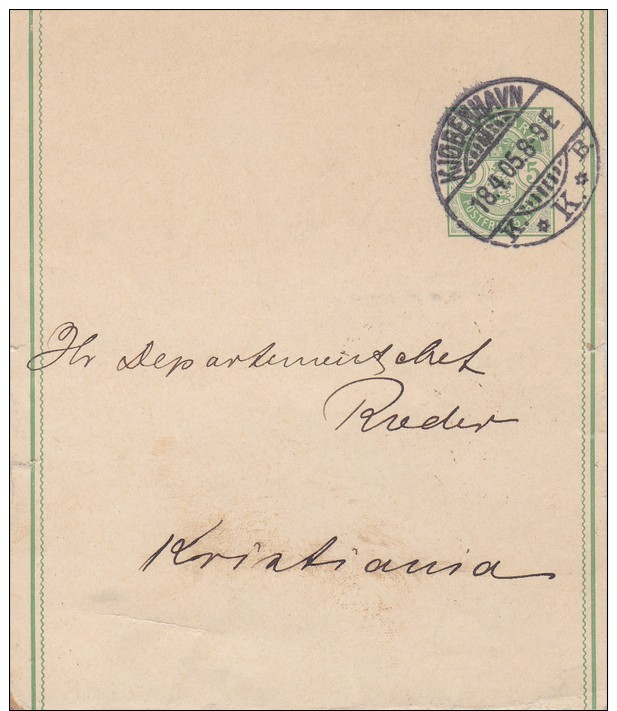 KJØBENHAVN
18.4.05.8-9E.
K. K. B.
5
Hr Departementschef
Kristiania